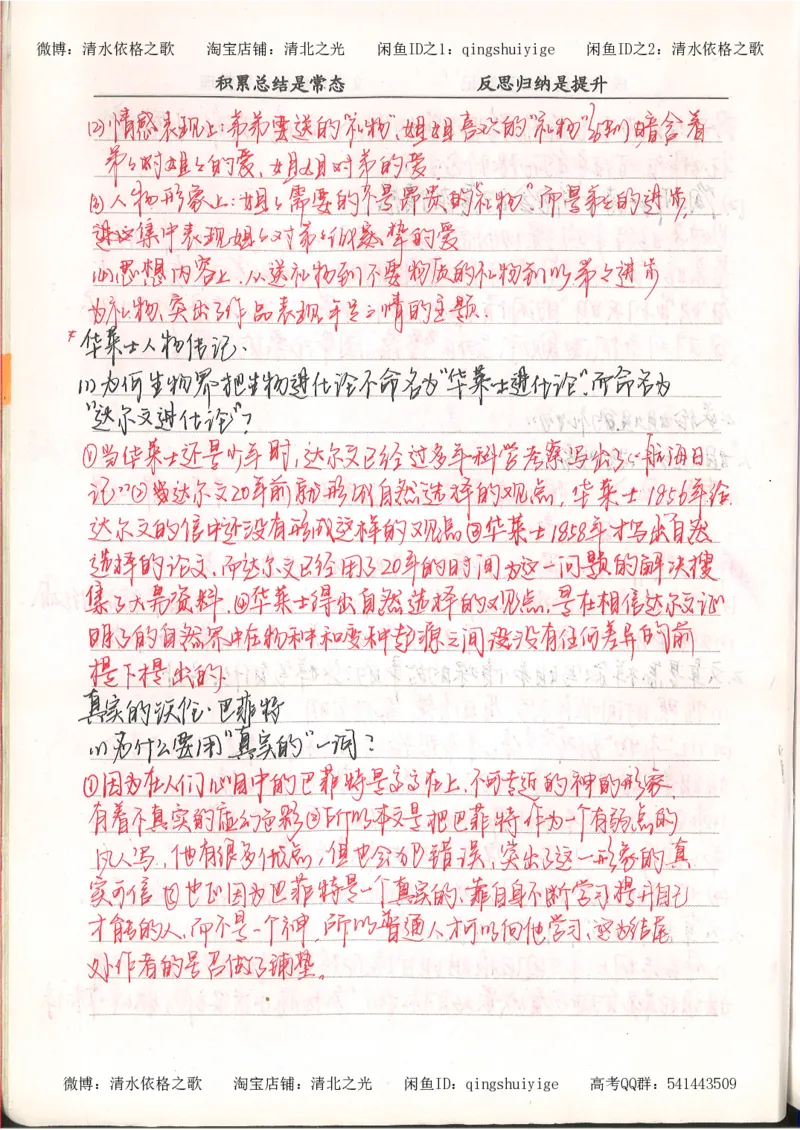 微博：清水依格之歌 淘宝店铺：清北之光 闲鱼ID之1：qingshuiyige 闲鱼ID之2：清水依格之歌
积累总结是常态 反思归纳是提升
(2)情感表现上：弟弟要送的“礼物”，姐姐喜欢的“礼物”分别暗含着
弟弟对姐姐的爱、姐姐对弟的爱.
(3)人物形象上：姐姐需要的不是昂贵的“礼物”而是弟弟的进步，
进一步集中表现姐姐对弟弟的真挚的爱
(4)思想内容上，从送礼物到不要物质的礼物到以弟弟进步
为礼物，突出了作品表现手足之情的主题.
*华莱士人物传记.
(1)为何生物界把生物进化论不命名为“华莱士进化论”而命名为
“达尔文进化论”？
①当华莱士还是少年时，达尔文已经过多年科学考察写出了《航海日
记》②达尔文20年前就形成自然选择的观点，华莱士1856年给
达尔文的信中还没有形成这样的观点③华莱士1858年才写出自然
选择的论文，而达尔文已经用了20年的时间为这一问题的解决搜
集了大量资料.④华莱士得出自然选择的观点，是在相信达尔文证
明了的自然界中在物种和变种起源之间没有任何差异的前
提下提出的
真实的沃伦·巴菲特
(1)为什么要用“真实的”一词？
①因为在人们心目中的巴菲特是高高在上，不可靠近的神的形象，
有着不真实的虚幻色彩②所以本文是把巴菲特作为一个有弱点的
凡人写，他有很多优点，但也会犯错误，突出了这一形象的真
实可信③也正因为巴菲特是一个真实的、靠自身不断学习提升自己
才能的人，而不是一个神，所以普通人才可以向他学习，这为结尾
处作者的号召做了铺垫。
微博：清水依格之歌 淘宝店铺：清北之光 闲鱼ID：qingshuiyige 高考QQ群：541443509